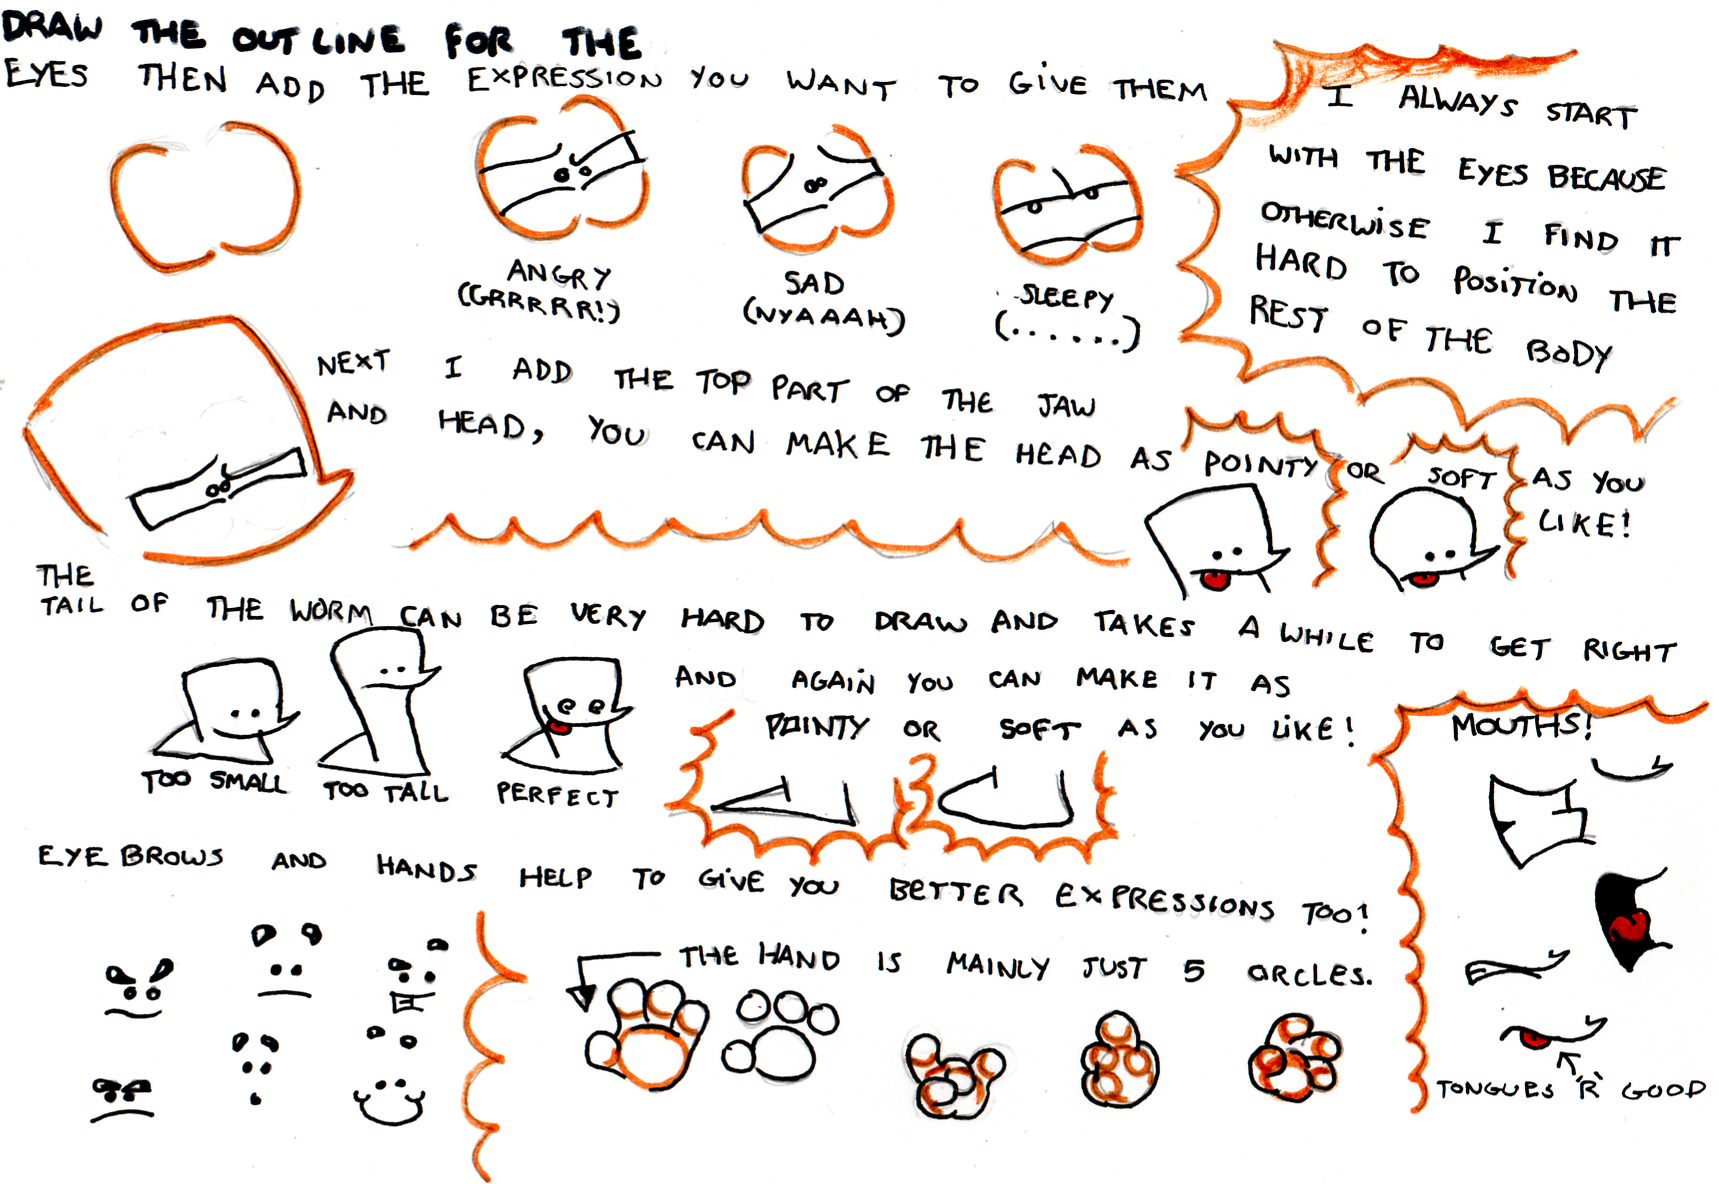 DRAW THE OUTLINE FOR THE
EYES THEN ADD THE EXPRESSION YOU WANT TO GIVE THEM
ANGRY
(GRRRRR!)
SAD
(NYAAAH)
SLEEPY
(......)
I ALWAYS START
WITH THE EYES BECAUSE
OTHERWISE I FIND IT
HARD TO POSITION THE
REST OF THE BODY
NEXT I ADD THE TOP PART OF THE JAW
AND HEAD, YOU CAN MAKE THE HEAD AS POINTY OR SOFT AS YOU
LIKE!
THE
TAIL OF THE WORM CAN BE VERY HARD TO DRAW AND TAKES A WHILE TO GET RIGHT
AND AGAIN YOU CAN MAKE IT AS
POINTY OR SOFT AS YOU LIKE!
TOO SMALL
TOO TALL
PERFECT
MOUTHS!
EYEBROWS AND HANDS HELP TO GIVE YOU BETTER EXPRESSIONS TOO!
THE HAND IS MAINLY JUST 5 CIRCLES.
TONGUES 'R' GOOD